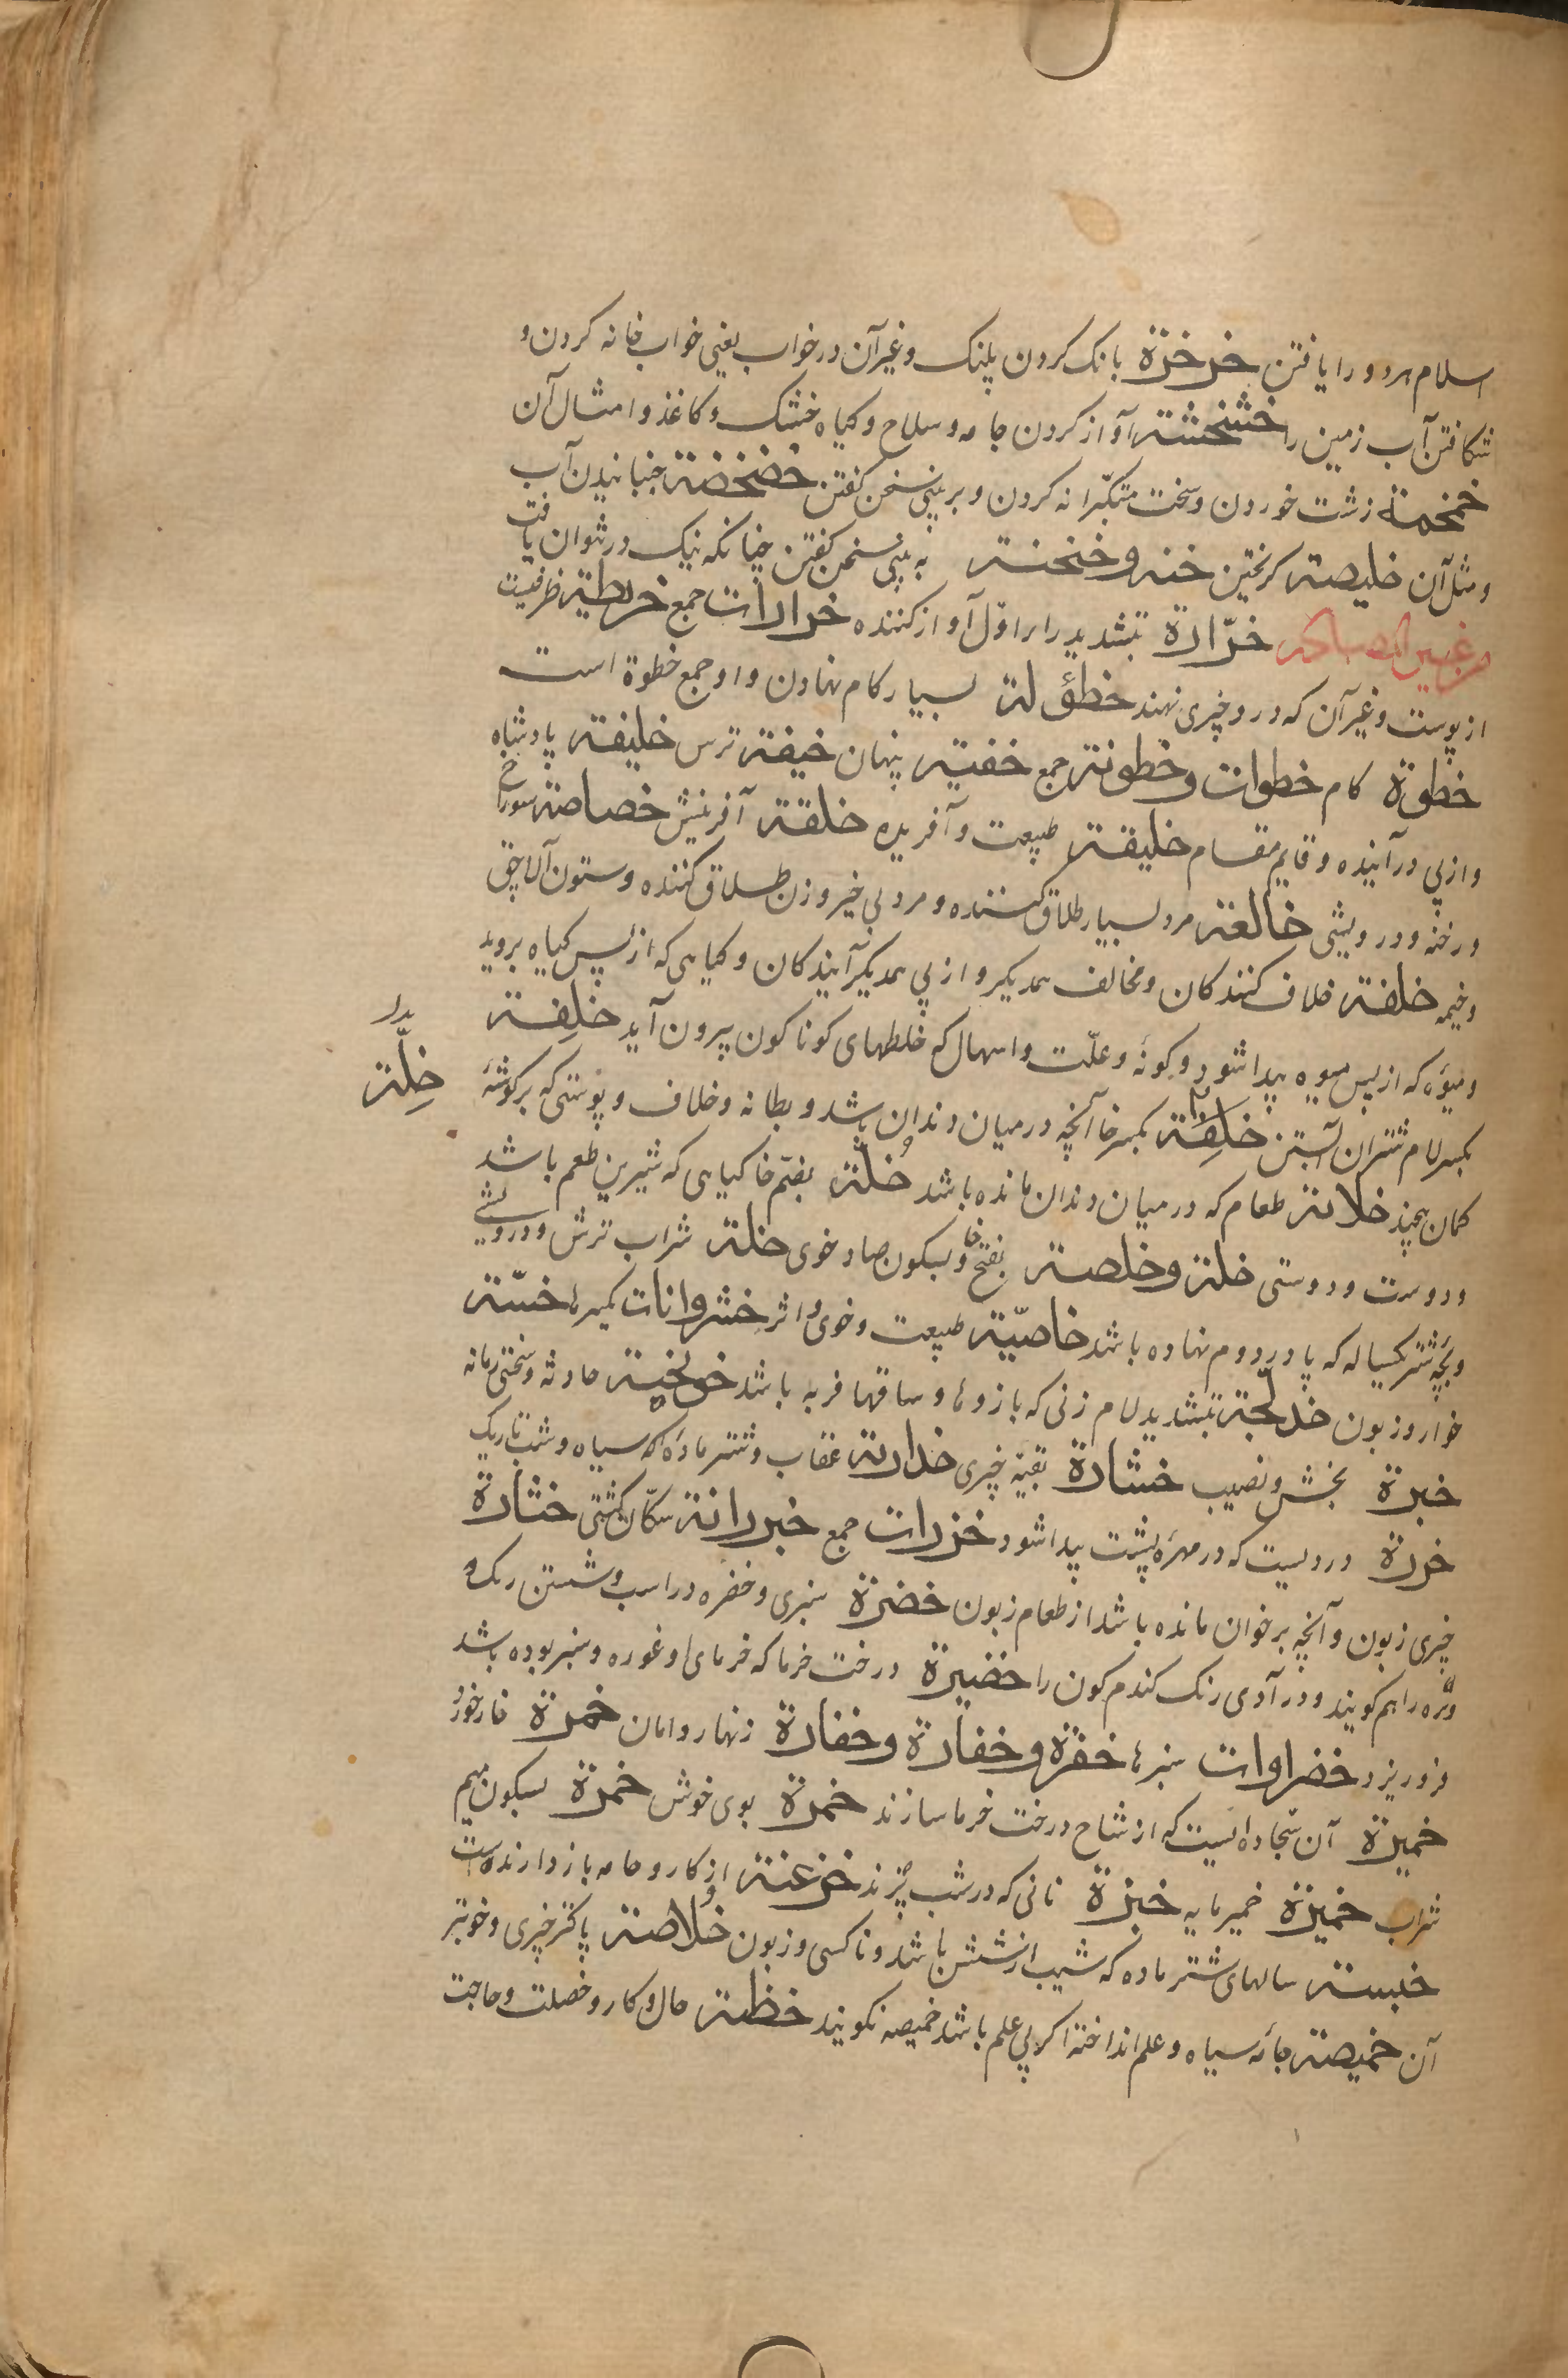 اسلام هر دو را یافتن خرخرة بانک کردن پلنک و غیر آن در خواب یعنی خواب خانه کردن و
شکافتن آب زمین را خشخشة آواز کردن جامه و سلاح و کیاه خشک و کاغذ و امثال آن
خمخمة زشت خوردن و سخت متکبرانه کردن و بر بینی سخن کفتن خضخضة جنبانیدن آب
و مثل آن خلیصة کریختن خنه و خنخنة به بینی سخن کفتن چنانکه نیک در نتوان یافت
من غیر المصادر خرّارة بتشدید را را اوّل آواز کننده خرارات جمع خریطة ظرفیست
از پوست و غیر آن که درو چیزی نهند خطؤلة بسیار کام نهادن و او جمع خطوة است
خطوة کام خطوات و خطوة جمع خفیة پنهان خیفة ترس خلیفة پادشاه
و از پی در آینده و قایم مقام خلیقة طبیعت و آفریده خلقة آفرینش خصاصة سوراخ
و رخنه و درویشی خالعة مرد بسیار طلاق کننده و مرد بی خیر و زن طلاق کننده و ستون آلاچق
و خیمه خلفة خلاف کنندکان و مخالف همدیکر و از پی همدیکر آیندکان و کیاهی که از پس کیاه بروید
و میوهٔ که از پس میوه پیدا شود و کونهٔ و علّت و اسهال که خلطهای کوناکون بیرون آید خلِفة
بکسر لام شتران آبستن خلّة بکسر خا آنچه در میان دندان باشد و بطانه و خلاف و پوستی که بر کوشهٔ
خِلّة بدل
کمان پیچند خلالة طعام که در میان دندان مانده باشد خُلّة بضمّ خا کیاهی که شیرین طعم باشد
و دوست و دوستی خلة و خلصة بفتح خا و بسکون صاد خوی خلة شراب ترش و درویشی
و بچّهٔ شتر یکساله که پا در دوم نهاده باشد خاصیّة طبیعت و خوی و اثر خشروانات کمیرها خسّة
خوار و زبون خدلّجة بتشدید لام زنی که بازوها و ساقها فربه باشد خویخیة حادثه و سختی زمانه
خبرة بخش و نصیب خشارة بقیّهٔ چیزی خداریة عقاب و شتر مادهٔ که سیاه و شب تاریک
خرزة دردیست که در مهرهٔ پشت پیدا شود خزرات جمع خیزرانة سکّان کشتی خثارة
چیزی زبون و آنچه بر خوان مانده باشد از طعام زبون خضرة سبزی و خضره در اسب و شستن رنک و
و تره را هم کویند و در آدمی رنک کندم کون را خضیرة درخت خرما که خرمای او غوره و سبز بوده باشد
فرو ریزد خضراوات سبزها خفرة و خفارة و خفارة زنهار و امان خمرة خار خورد
خمیرة آن سجّاده ایست که از شاخ درخت خرما سازند خمرة بوی خوش خمرة بسکون میم
شراب خمیرة خمیر مایه خبزة نانی که در شب پزند خزعنة از کار و جامه باز دارنده است
خبستة سالهای شتر ماده که شیب از شش باشد و ناکسی و زبون خُلاصة پاکتر چیزی و خوبتر
آن خمیصة جامهٔ سیاه و علم انداخته اکر بی علم باشد خمیصه نکویند خظة حال و کار و خصلت و حاجت